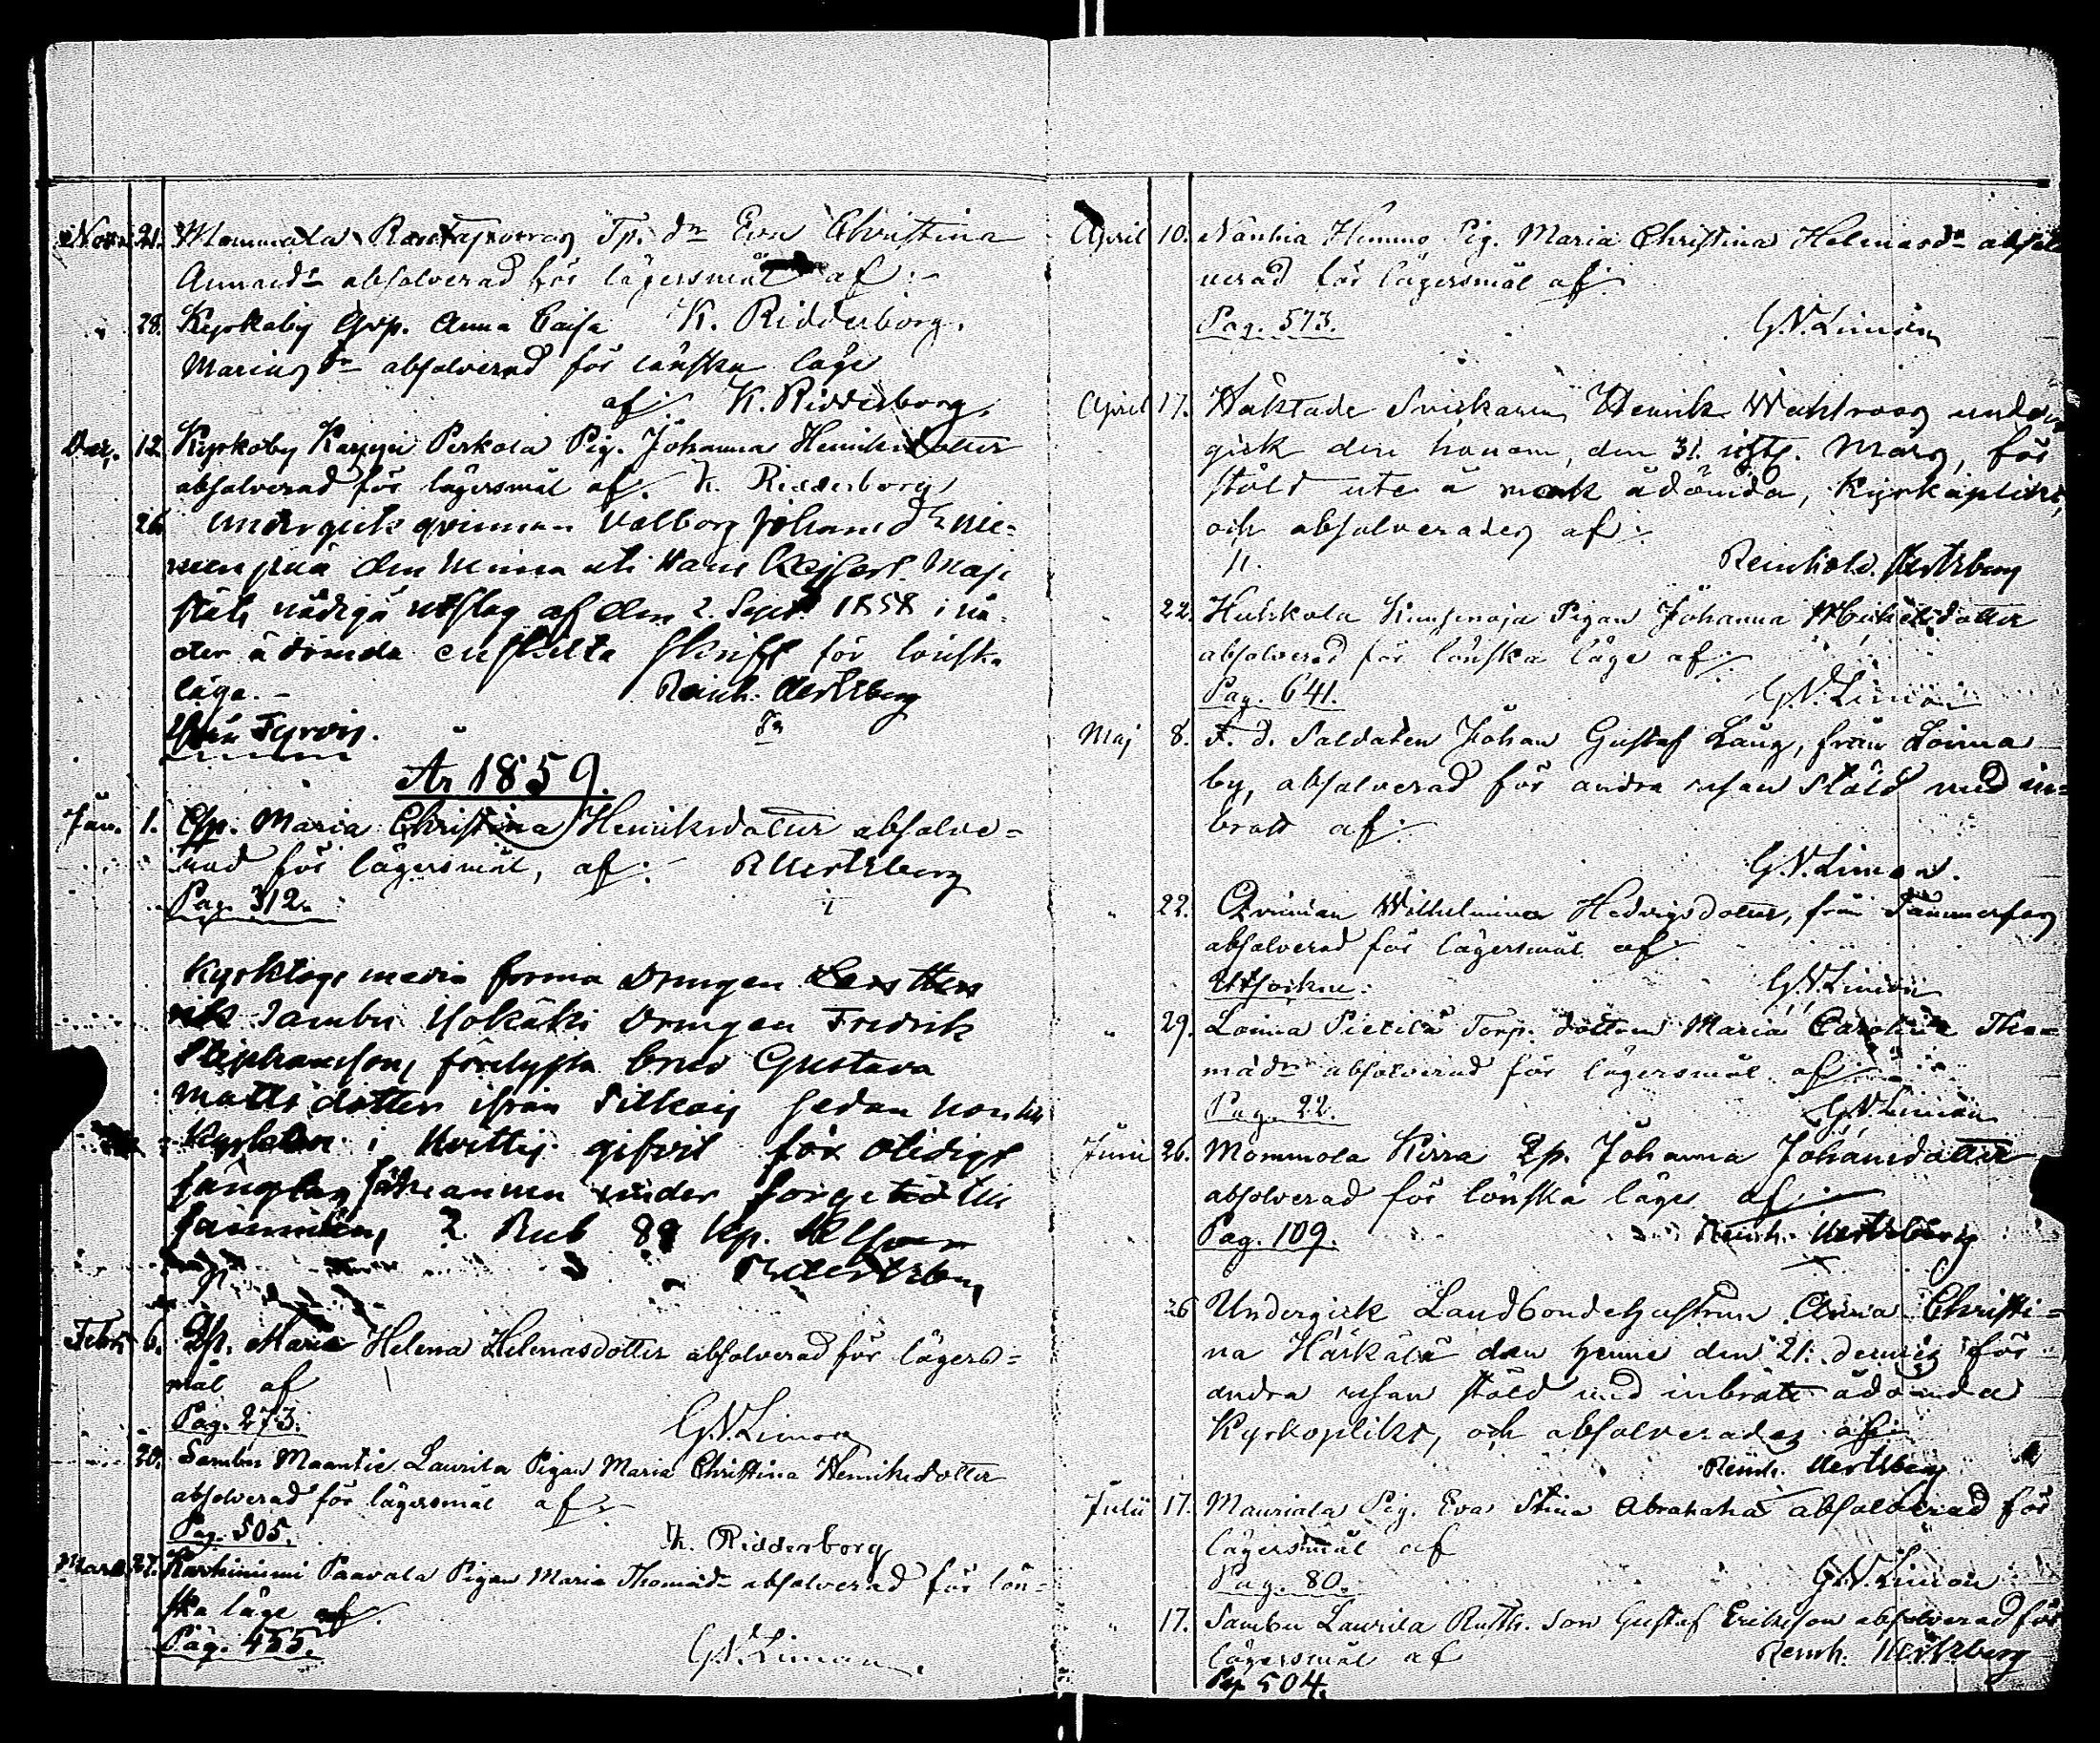 Nov. 21. Mommala Rantaprovas Tp. dr Eva Christina
Annaedr absolverad för lägersmål af:
28. Kyrkoby Qvp. Anna Caisa K. Ridderborg.
Mariasdr absolverad för lönska läge
af: K. Ridderborg.
Dec. 12. Kyrkoby Kappu Perkola Pig. Johanna Henriksdotter
absolverad för lägersmål af. K. Ridderborg
26. Undergick qvinnan Valborg Johansdr
den henne uti Hans Kejserl. Maje
stäts nådiga utslag af den 2. Sept. 1858 i nå-
der ådömda enskilta skrift för lönska
läge.- Reinh. Hertzberg
ifrån Tyrvis.
År 1859.
Jan. 1. Maria Christina Henriksdotter absolve-
rad för lägersmål, af: R Hertzberg
Pag. 312.
Drengen
Sambu Isokäki Drengen Fredrik
Stephansson, förelysta brud Gustava
Mattsdotter ifrån
i Kvittis gifvit för otidigt
under
2 Rub 88 Kp.
RHertzberg
Febr. 6. Maria Helena Helenasdotter absolverad för lägers-
mål af
Pag. 273. G.V.Limon
20. Sambu Maantie Laurila Pigan Maria Christina Henriksdotter
absolverad för lägersmål af:
Pag. 505.
K. Ridderborg
Mars 27. Karhiniemi Paavola Pigan Maria Thomædr absolverad för lön-
ska läge af.
Pag. 455. G.V.Limon.
April 10. Nanhia Hemmo Pig. Maria Christina Helenasdr absol-
verad för lägersmål af:
Pag. 573. G.V.Limon
April 17. Häktade Svickaren Henrik Wahlroos under-
gick den honom, den 31. sistl. Mars, för
stöld ute å mark ådömda, Kyrkoplikt,
och absolverades af:
Reinhold. Hertzberg
22. Huhkola Pigan Johanna Michelsdotter
absolverad för lönska läge af:
Pag. 641. G.V.Limon
Maj 8. F. d. Soldaten Johan Gustaf Lång, från Loima
by, absolverad för andra resan stöld med in-
brott af:
G.V.Limon.
" 22. Qvinnan Wilhelmina Hedvigsdotter, från Tammerfors
absolverad för lägersmål af:
Utsocken. G.V.Limon
" 29. Loima Pietilä Torp. dottern Maria Carolina Tho-
mædr absolverad för lägersmål af
Pag. 22. G.V.Limon
Juni 26. Mommola Kirra Johanna Johansdotter
absolverad för lönska läge af:
Pag. 109. Reinh. Hertzberg
26 Undergick Landbondehustrun Anna Christi-
na Härkälä den henne den 21. dennes för
andra resan stöld med inbrott ådömda
Kyrkoplikt, och absolverades af:
Reinh. Hertzberg
Julii 17. Mauriala Pig. Eva Stina Abrahaha absolverad för
lägersmål af
Pag. 80. G.V.Limon
" 17. Sambu Laurila Rusth. son Gustaf Eriksson absolverad för
lägersmål af Reinh. Hertzberg
Pag 504.